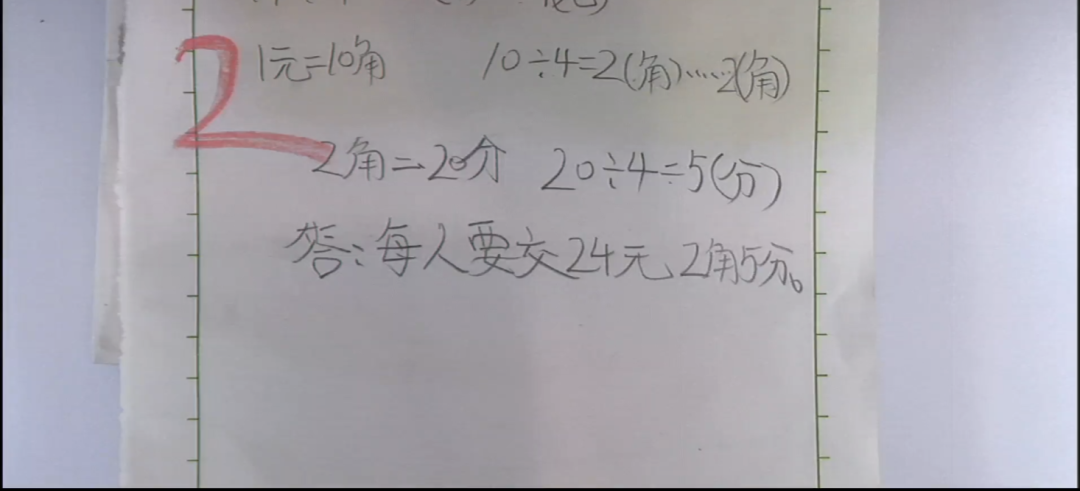 2 1元=10角 10÷4=2(角)……2(角)
2角=20分 20÷4=5(分)
答:每人要交24元2角5分。